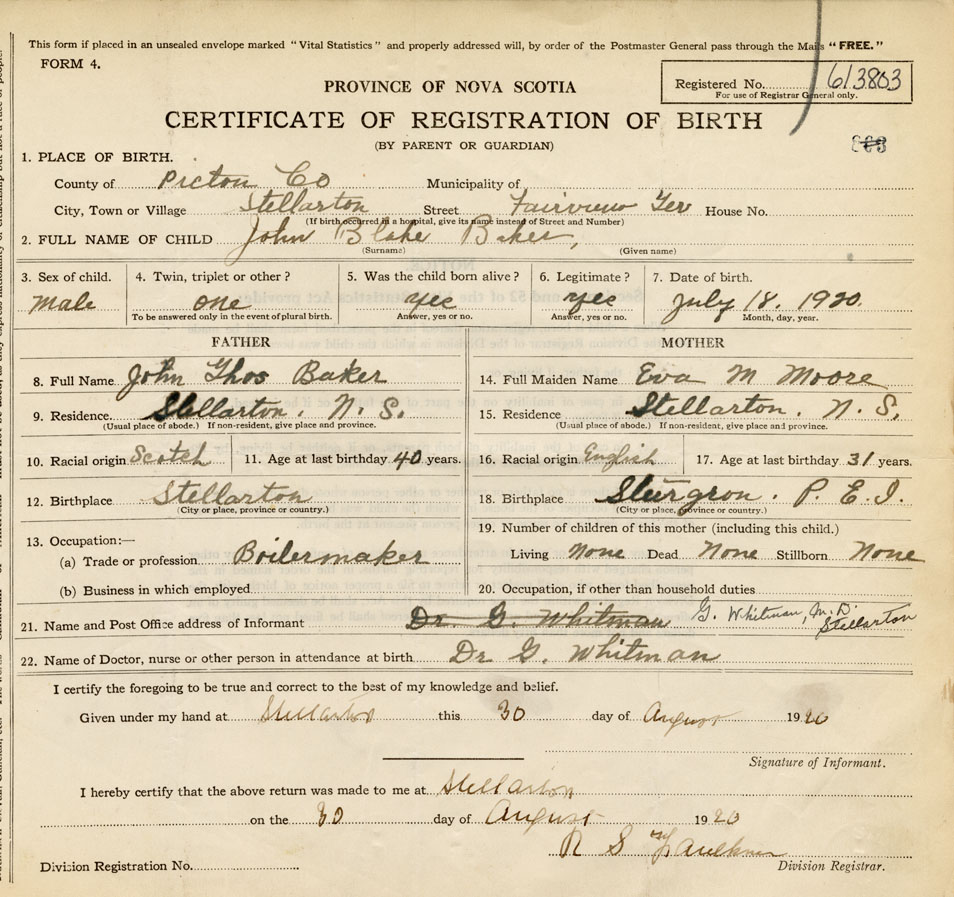 This form if placed in an unsealed envelope marked "Vital Statistics" and properly addressed will, by order of the Postmaster General pass through the Mails "FREE."
FORM 4.
PROVINCE OF NOVA SCOTIA
Registered No. 613803
For use of Registrar General only.
CERTIFICATE OF REGISTRATION OF BIRTH
(BY PARENT OR GUARDIAN)
1. PLACE OF BIRTH.
County of Picton Co Municipality of
City, Town or Village Stellarton Street Fairview Ter House No.
(If birth occurred in a hospital, give its name instead of Street and Number)
2. FULL NAME OF CHILD John Blake Baker,
(Surname) (Given name)
3. Sex of child. 4. Twin, triplet or other? 5. Was the child born alive? 6. Legitimate? 7. Date of birth.
Male one yes yes July 18. 1920.
To be answered only in the event of plural birth. Answer, yes or no. Answer, yes or no. Month, day, year.
FATHER MOTHER
8. Full Name John Thos Baker 14. Full Maiden Name Eva M Moore
9. Residence. Stellarton. N. S. 15. Residence Stellarton. N. S.
(Usual place of abode.) If non-resident, give place and province. (Usual place of abode.) If non-resident, give place and province.
10. Racial origin Scotch 11. Age at last birthday 40 years. 16. Racial origin English 17. Age at last birthday 31 years.
12. Birthplace Stellarton 18. Birthplace Sturgeon. P. E. I.
(City or place, province or country.) (City or place, province or country.)
19. Number of children of this mother (including this child.)
13. Occupation:—
(a) Trade or profession Boilermaker Living None Dead None Stillborn None
(b) Business in which employed 20. Occupation, if other than household duties
21. Name and Post Office address of Informant Dr. G. Whitman G. Whitman, M. D. Stellarton
22. Name of Doctor, nurse or other person in attendance at birth Dr G. Whitman
I certify the foregoing to be true and correct to the best of my knowledge and belief.
Given under my hand at Stellarton this 30 day of August 1920
Signature of Informant.
I hereby certify that the above return was made to me at Stellarton
on the 30 day of August 1920
R S Faulkner
Division Registration No. Division Registrar.